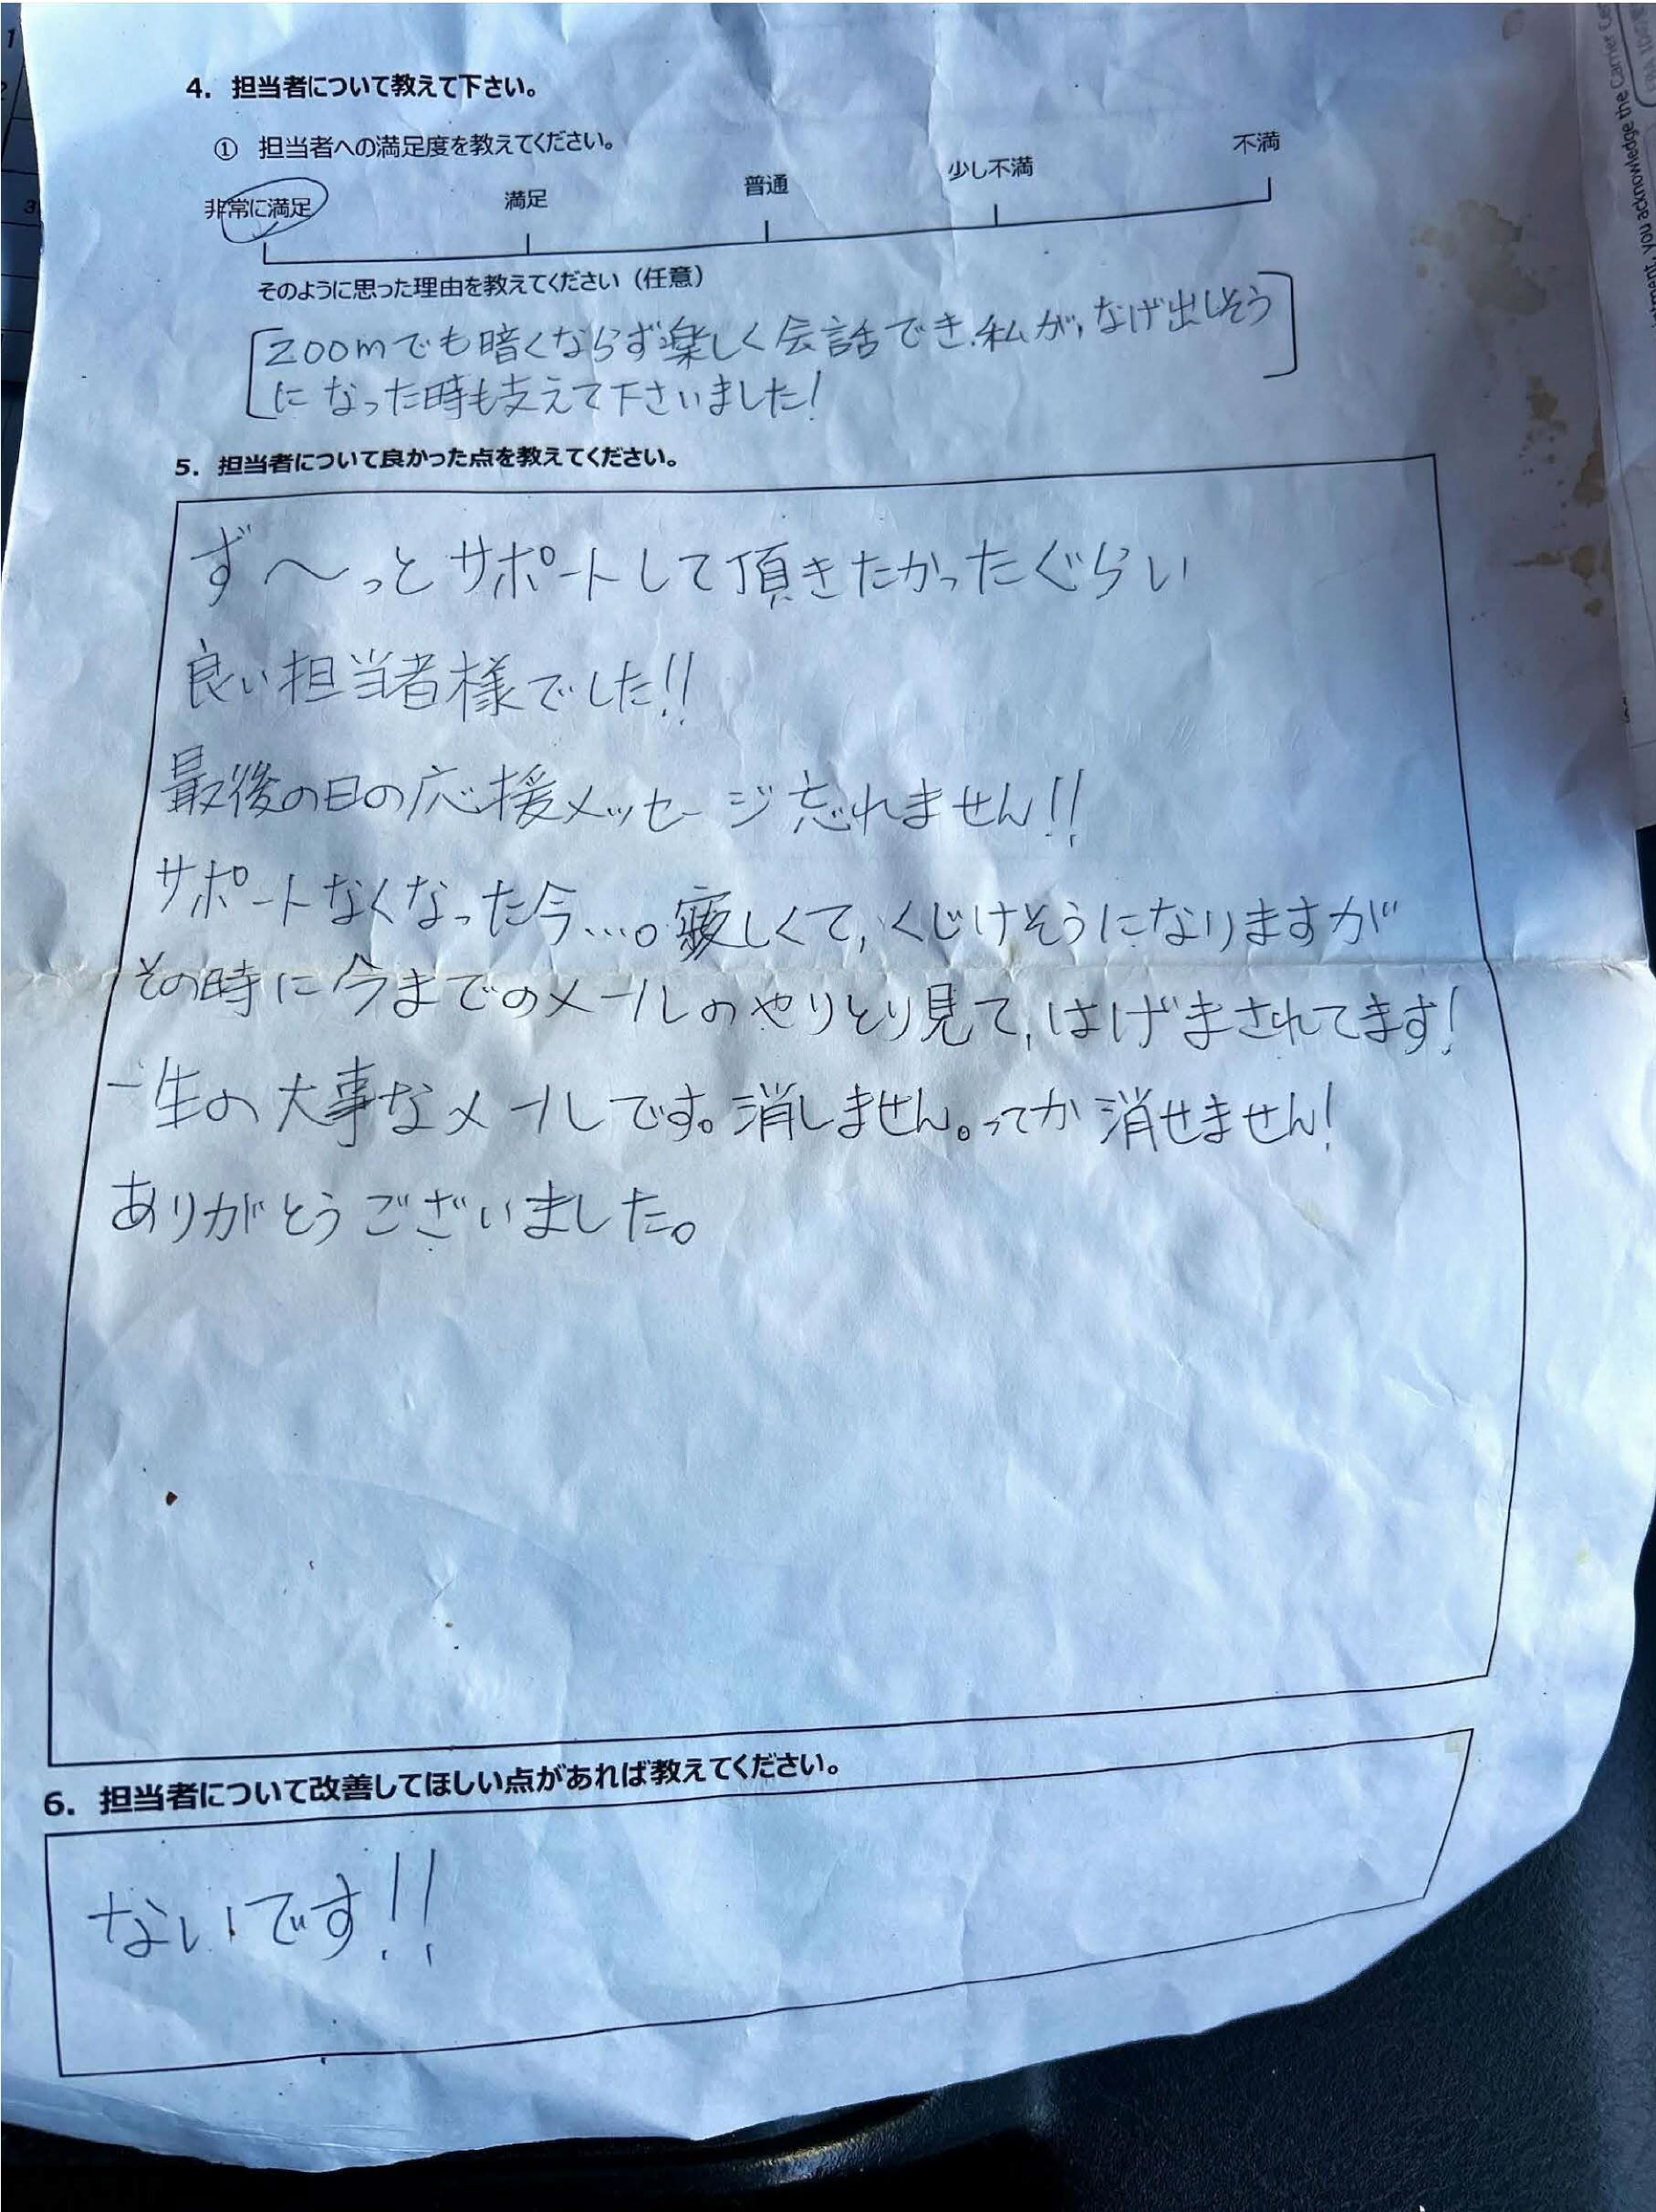 4. 担当者について教えて下さい。
① 担当者への満足度を教えてください。
非常に満足 満足 普通 少し不満 不満
そのように思った理由を教えてください（任意）
zoomでも暗くならず楽しく会話でき、私が、なげ出しそう
になった時も支えて下さいました!
5. 担当者について良かった点を教えてください。
ず〜っとサポートして頂きたかったぐらい
良い担当者様でした!!
最後の日の応援メッセージ忘れません!!
サポートなくなった今…。しくて、くじけそうになりますが
その時に今までのメールのやりとり見て、はげまされてます!
一生の大事なメールです。消しません。ってか消せません!
ありがとうございました。
6. 担当者について改善してほしい点があれば教えてください。
ないです!!
you acknowledge the Carrier